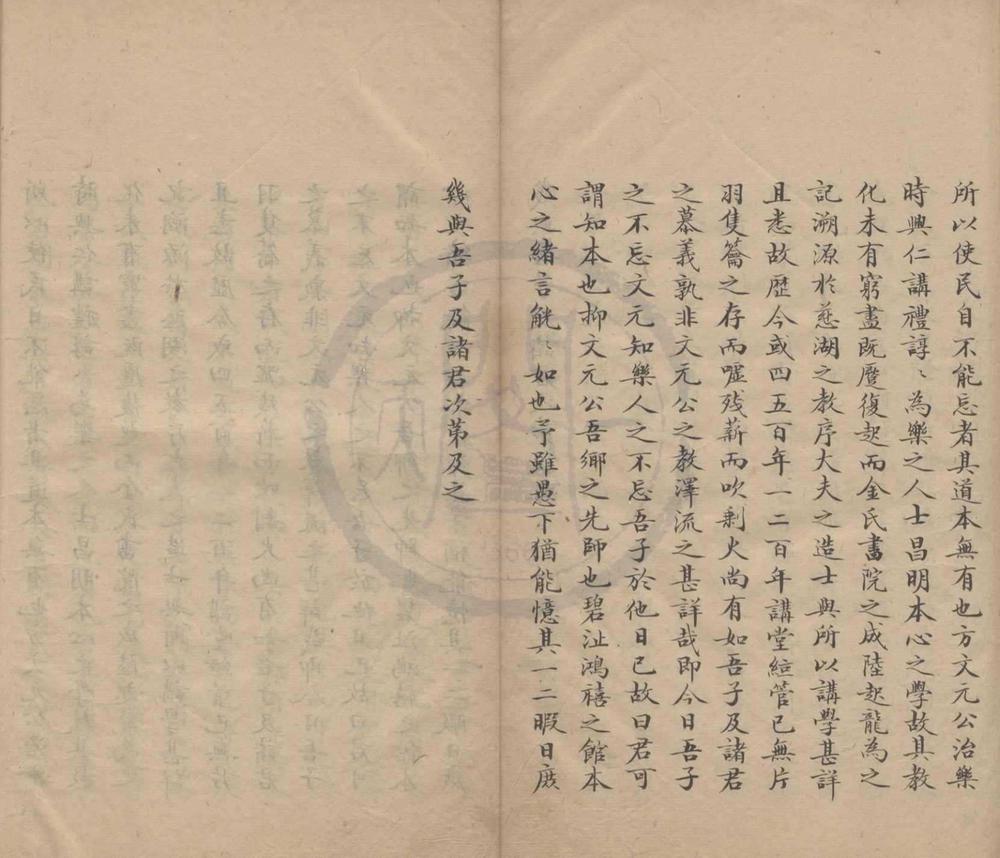 所以使民自不能忘者其道本無有也方文元公治樂
時興仁講禮諄〻為樂之人士昌明本心之學故其教
化未有窮盡既歷復起而金氏書院之成陸起龍為之
記溯源於慈湖之教序大夫之造士與所以講學甚詳
且悉故歷今或四五百年一二百年講堂絃管已無片
羽隻籥之存而噓殘薪而吹剩火尚有如吾子及諸君
之慕義孰非文元公之教澤流之甚詳哉即今日吾子
之不忘文元知樂人之不忘吾子於他日已故曰君可
謂知本也抑文元公吾鄉之先師也碧沚鴻禧之館本
心之緒言觥〻如也予雖愚下猶能憶其一二暇日庶
幾與吾子及諸君次第及之